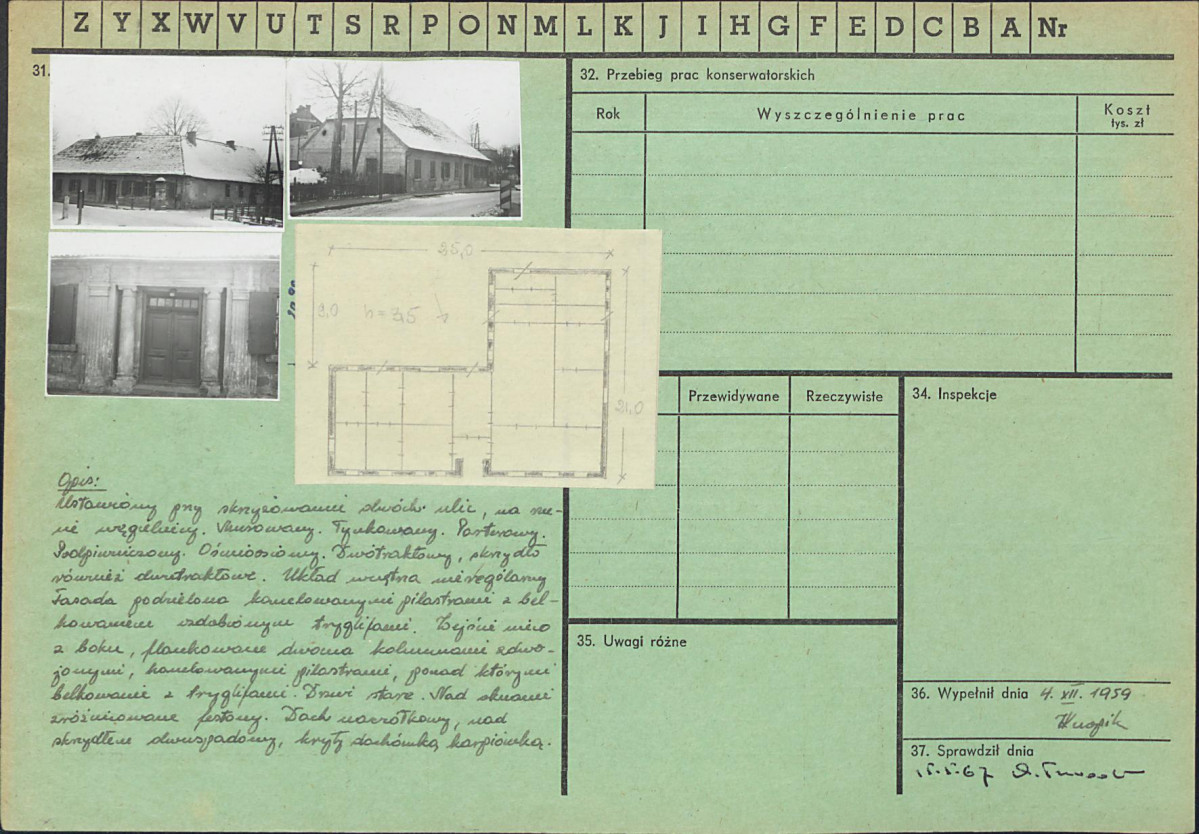 Z Y X W V U T S R P O N M L K J I H G F E D C B A Nr
31.
25,0
9,0 h = 3,5
21,0
Opis:
Ustawiony przy skrzyżowaniu dwóch ulic, na rzu-
cie węgielnicy. Murowany. Tynkowany. Parterowy.
Podpiwniczony. Ośmioosiowy. Dwutraktowy, skrzydło
również dwutraktowe. Układ wnętrza nierególarny
Fasada podzielona kanelowanymi pilastrami z bel-
kowaniem ozdobionym tryglifami. Wejście nieco
z boku, flankowane dwoma kolumnami zdwo-
jonymi, kanelowanymi pilastrami, ponad którymi
belkowanie z tryglifami. Drzwi stare. Nad oknami
zróżnicowane festony. Dach naczółkowy, nad
skrzydłem dwuspadowy, kryty dachówką karpiówką.
32. Przebieg prac konserwatorskich
Rok Wyszczególnienie prac Koszt
tys. zł
Przewidywane Rzeczywiste
34. Inspekcje
35. Uwagi różne
36. Wypełnił dnia 4. VII. 1959
37. Sprawdził dnia
15.5.67